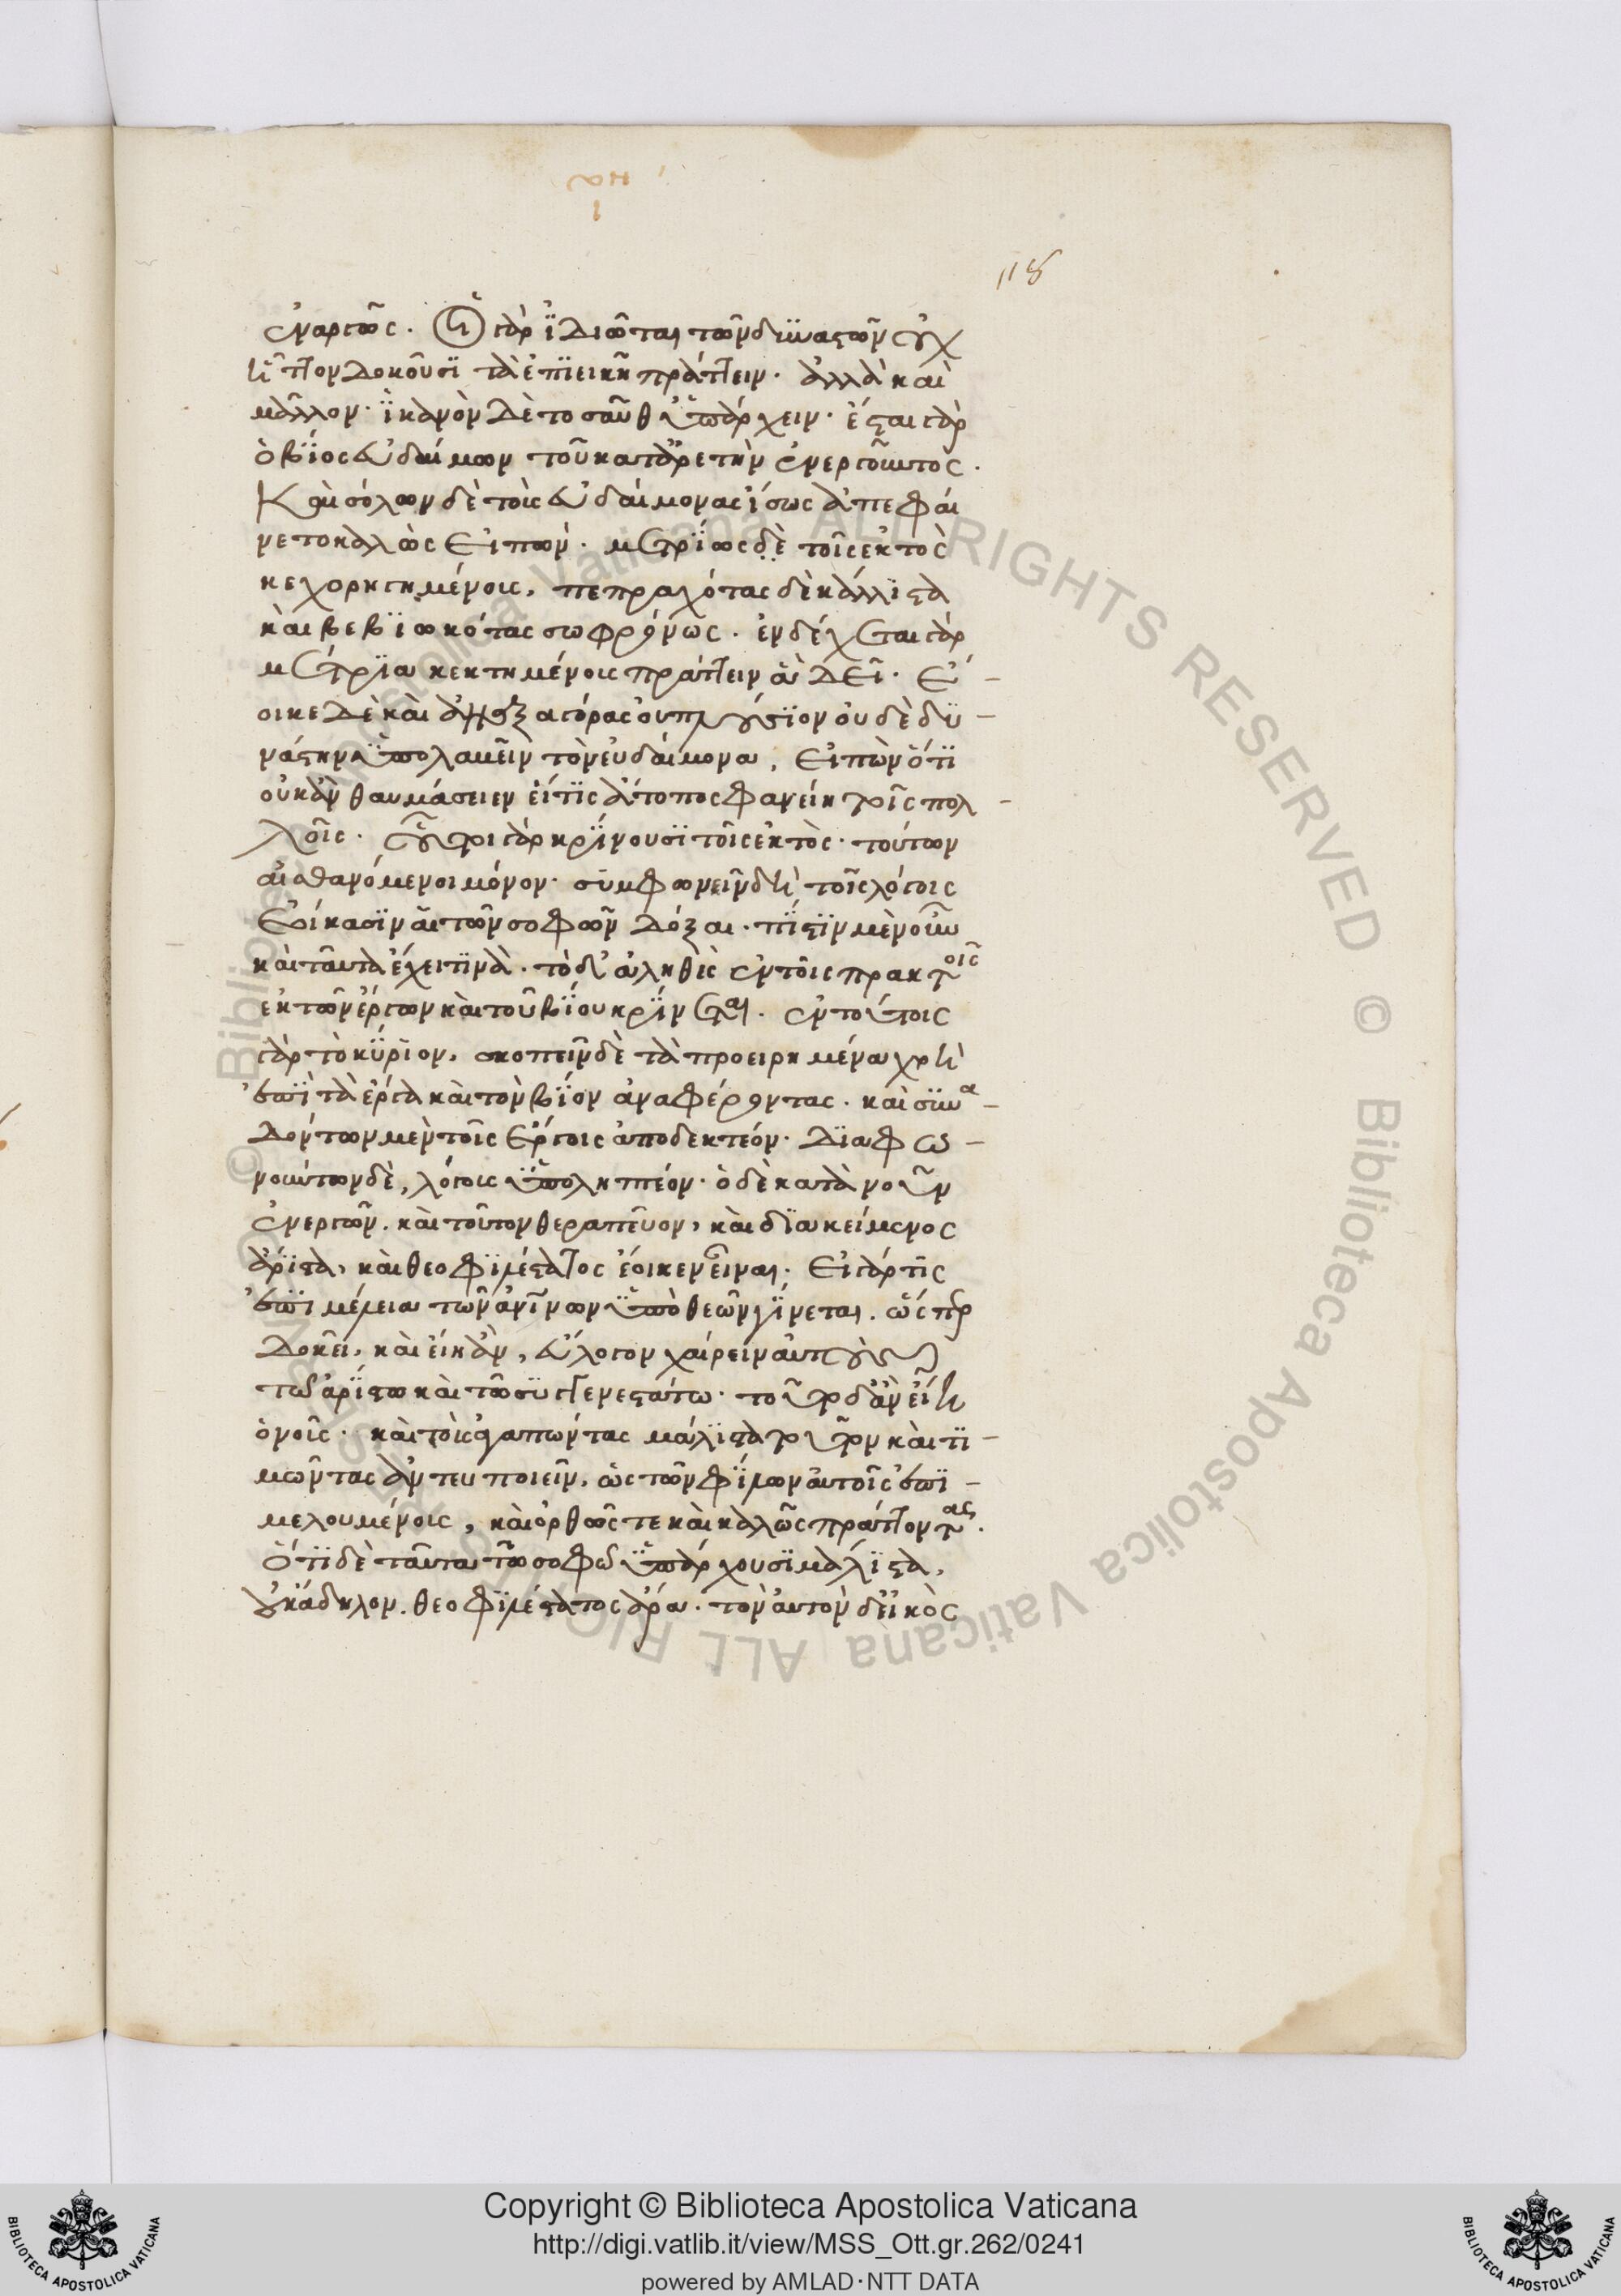 118
ἐναργῶς. Οἱ γὰρ ἰδιῶται τῶν δυναστῶν οὐχ
ἧττον δοκοῦσι τὰ ἐπιεικῆ πράττειν. ἀλλὰ καὶ
μᾶλλον. ἱκανὸν δὲ τοσαῦθ ὑπάρχειν. ἔσται γὰρ
ὁ βίος εὐδαίμων τοῦ κατ ἀρετὴν ἐνεργοῦντος.
Καὶ σόλων δὲ τοὺς εὐδαίμονας ἴσως ἀπεφαί
νετο καλῶς εἰπών. μετρίως δὲ τοῖς ἐκτὸς
κεχορηγημένοις, πεπραχότας δὲ κάλλιστα
καὶ βεβιωκότας σωφρόνως. ἐνδέχεται γὰρ
μέτρια κεκτημένοις πράττειν ἃ δεῖ. ἔ-
οικε δὲ καὶ ἀναξαγόρας οὐ πλούσιον οὐδὲ δυ-
νάστην ὑπολαβεῖν τὸν εὐδαίμονα, εἰπὼν ὅτι
οὐκ ἂν θαυμάσειεν εἴ τις ἄτοπος φανείη τοῖς πολ-
λοῖς. οὗτοι γὰρ κρίνουσι τοῖς ἐκτὸς. τούτων
αἰσθανόμενοι μόνον. συμφωνεῖν δὴ τοῖς λόγοις
ἐοίκασιν αἱ τῶν σοφῶν δόξαι. πίστιν μὲν οὖν
καὶ ταῦτα ἔχει τινὰ. τὸ δ' ἀληθὲς ἐν τοῖς πρακτοῖς
ἐκ τῶν ἔργων καὶ τοῦ βίου κρίνεται. ἐν τούτοις
γὰρ τὸ κύριον. σκοπεῖν δὲ τὰ προειρημένα χρὴ
ἐπὶ τὰ ἔργα καὶ τὸν βίον ἀναφέροντας. καὶ συνα-
δόντων μὲν τοῖς ἔργοις ἀποδεκτέον. διαφω-
νούντων δὲ, λόγοις ὑποληπτέον. ὁ δὲ κατὰ νοῦν
ἐνεργῶν. καὶ τοῦτον θεραπεύον, καὶ διακείμενος
ἄριστα, καὶ θεοφιλέστατος ἔοικεν εἶναι. Εἰ γάρ τις
ἐπιμέλεια τῶν ἀνίνων ὑπὸ θεῶν γίνεται. ὥσπερ
δοκεῖ. καὶ εἴη ἂν, εὔλογον χαίρειν αὐτοὺς
τῶ ἀρίστω καὶ τῶ συγγενεστάτω. τοῦτο δ ἂν εἴη
ὁ νοῖς. καὶ τοὺς ἀγαπῶντας μάλιστα τοῦτον καὶ τι-
μῶντας ἀντευποιεῖν. ὡς τῶν φίλων αὐτοῖς ἐπι-
μελουμένοις, καὶ ὀρθῶς τε καὶ καλῶς πράττοντας.
ὅτι δὲ ταῦτα τῶ σοφῶ ὑπάρχουσι μάλιστα,
οὐκ ἄδηλον. θεοφιλέστατος ἄρα. τὸν αὐτὸν δ εἰκὸς
© Biblioteca Apostolica Vaticana ALL RIGHTS RESERVED © Biblioteca Apostolica Vaticana ALL RIGHTS RESERVED
BIBLIOTECA APOSTOLICA VATICANA
Copyright © Biblioteca Apostolica Vaticana
http://digi.vatlib.it/view/MSS_Ott.gr.262/0241
powered by AMLAD·NTT DATA
BIBLIOTECA APOSTOLICA VATICANA